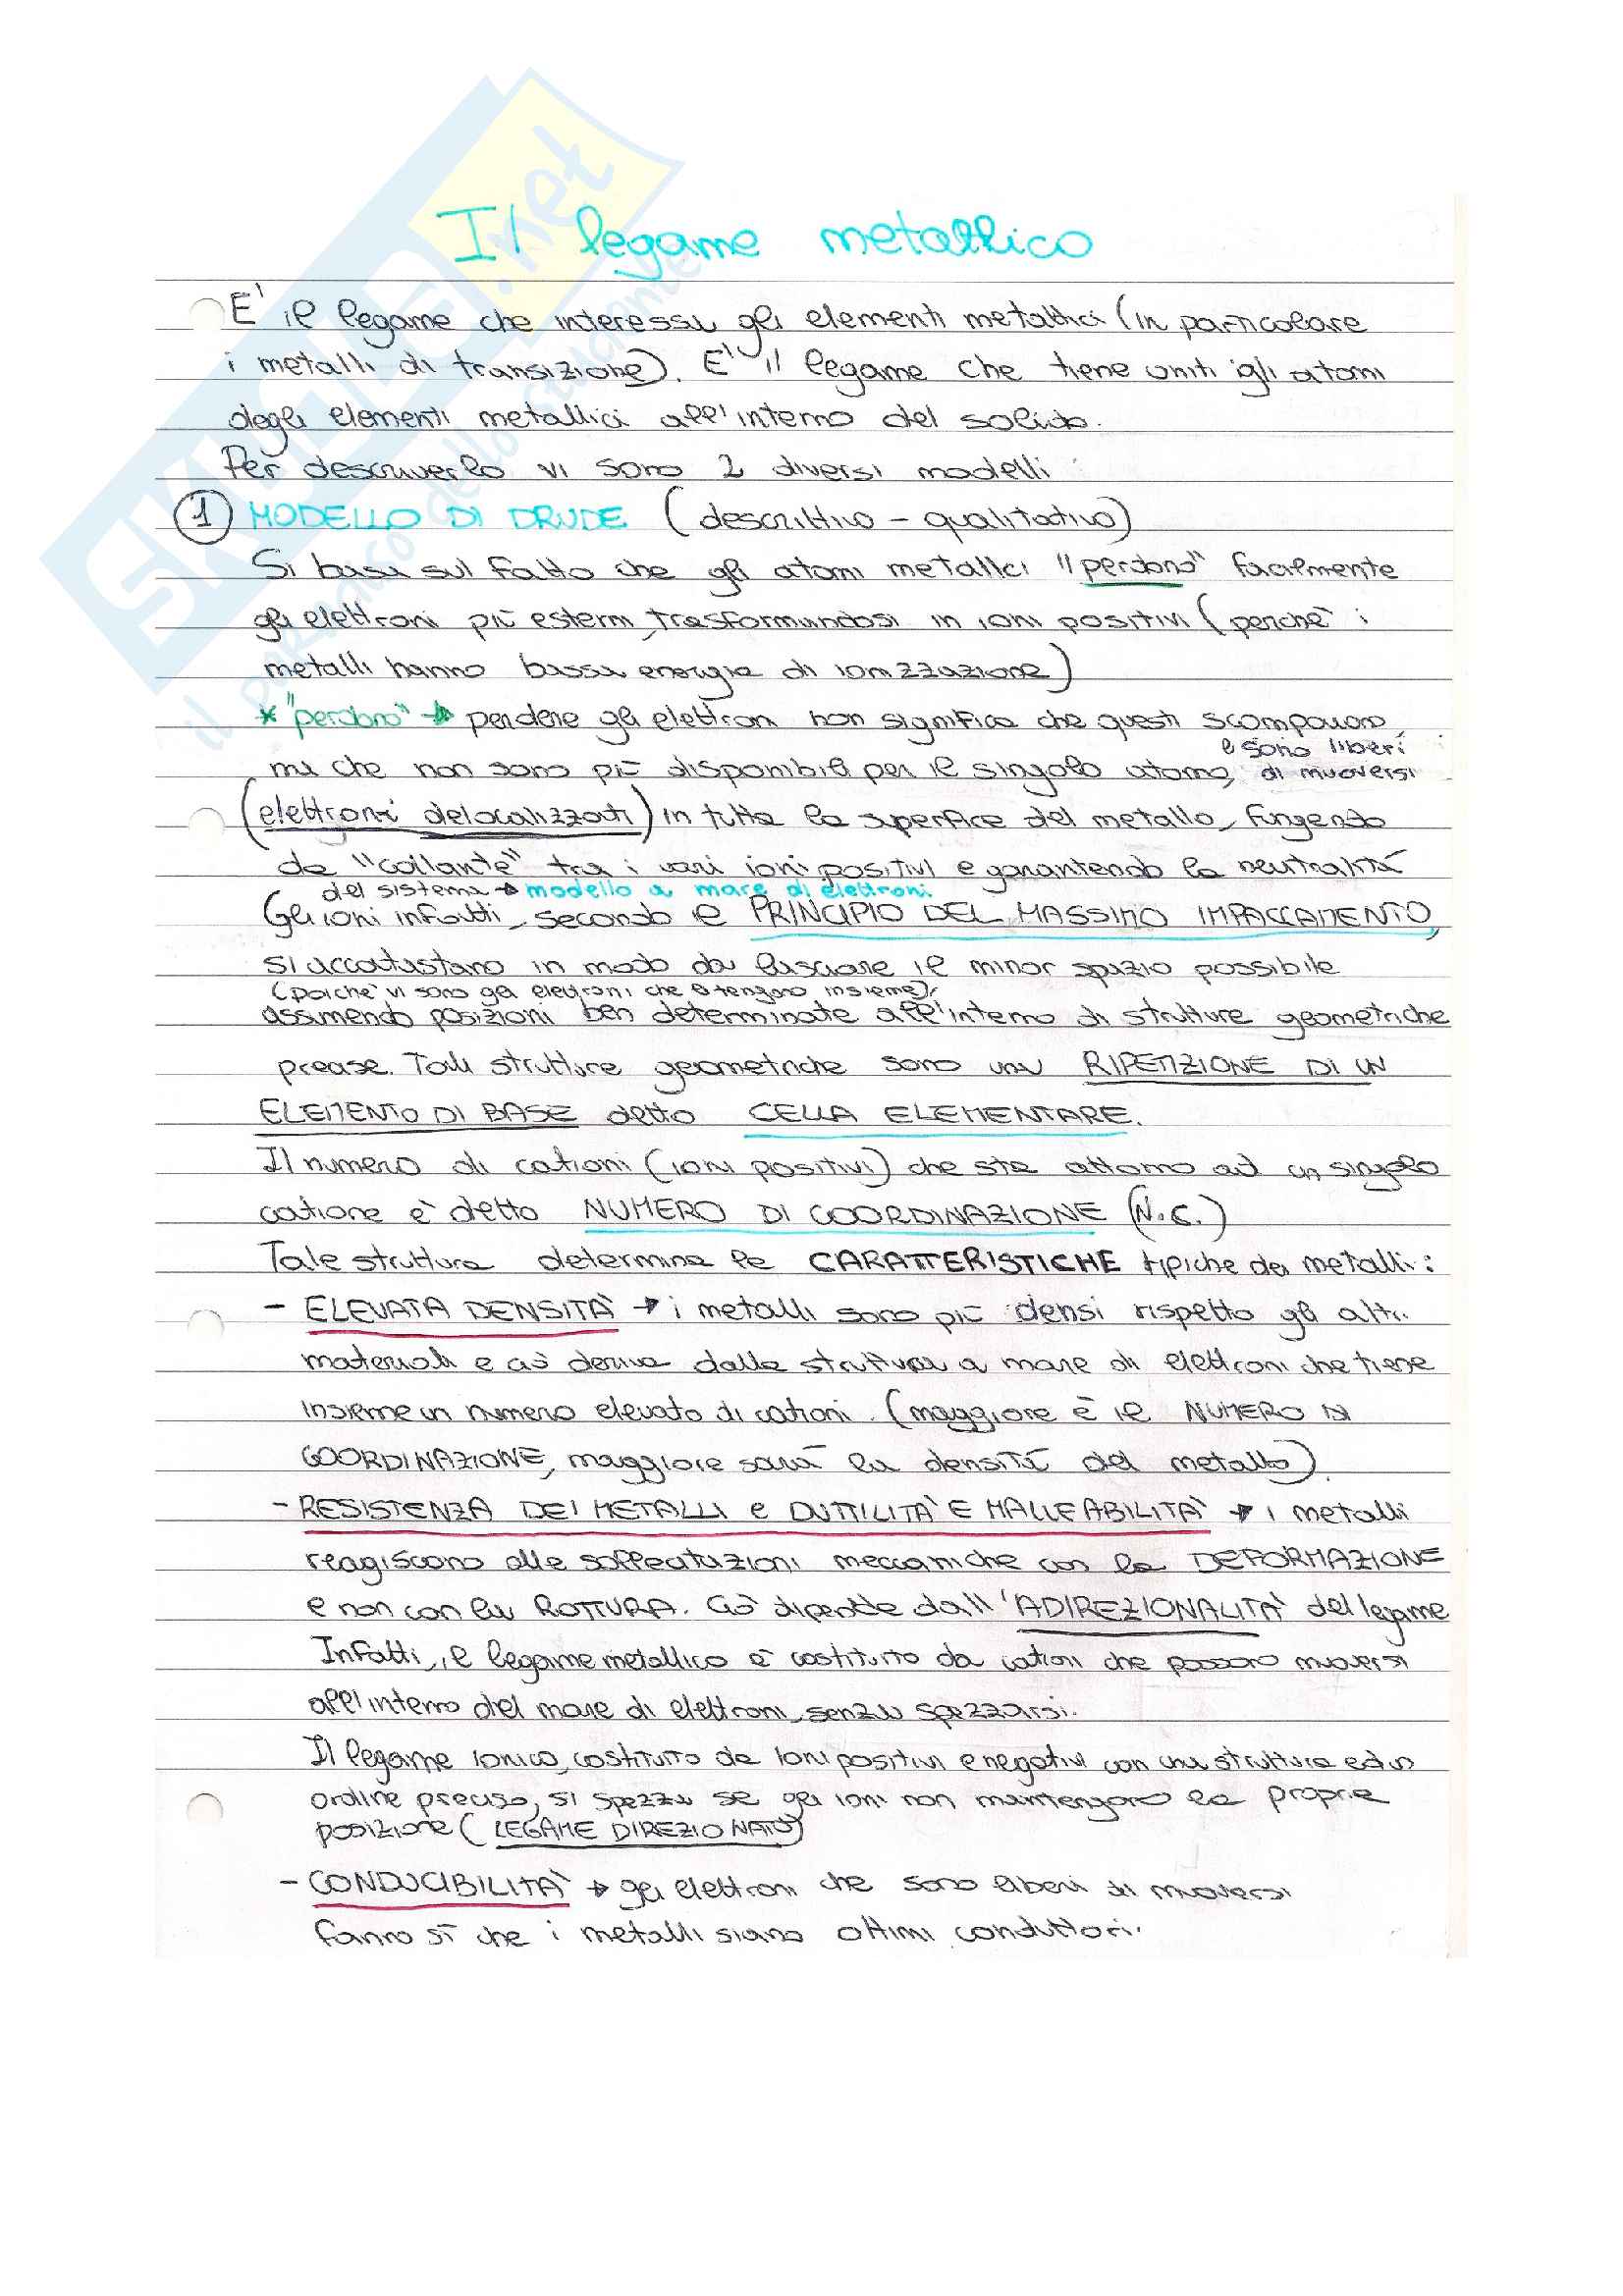 Il legame metallico
E' il legame che interessa gli elementi metallici (in particolare
i metalli di transizione). E' il legame che tiene uniti gli atomi
degli elementi metallici all'interno del solido.
Per descriverlo vi sono 2 diversi modelli:
1 MODELLO DI DRUDE (descrittivo - qualitativo)
Si basa sul fatto che gli atomi metallici "perdono" facilmente
gli elettroni più esterni, trasformandosi in ioni positivi (perchè i
metalli hanno bassa energia di ionizzazione)
* "perdono" → perdere gli elettroni non significa che questi scompaiono,
e sono liberi
ma che non sono più disponibili per il singolo atomo, di muoversi
(elettroni delocalizzati) in tutta la superfice del metallo, fungendo
da "collante" tra i vari ioni positivi e garantendo la neutralità
del sistema → modello a mare di elettroni.
Gli ioni infatti, secondo il PRINCIPIO DEL MASSIMO IMPACCAMENTO,
si accatastano in modo da lasciare il minor spazio possibile
(poichè vi sono gli elettroni che li tengono insieme),
assumendo posizioni ben determinate all'interno di strutture geometriche
precise. Tali strutture geometriche sono una RIPETIZIONE DI UN
ELEMENTO DI BASE detto CELLA ELEMENTARE.
Il numero di cationi (ioni positivi) che sta attorno ad un singolo
catione è detto NUMERO DI COORDINAZIONE (N.C.)
Tale struttura determina le CARATTERISTICHE tipiche dei metalli:
- ELEVATA DENSITÀ → i metalli sono più densi rispetto gli altri
materiali e ciò deriva dalla struttura a mare di elettroni che tiene
insieme un numero elevato di cationi. (maggiore è il NUMERO DI
COORDINAZIONE, maggiore sarà la densità del metallo).
- RESISTENZA DEI METALLI e DUTTILITÀ E MALLEABILITÀ → i metalli
reagiscono alle sollecitazioni meccaniche con la DEFORMAZIONE
e non con la ROTTURA. Ciò dipende dall'ADIREZIONALITÀ del legame
Infatti, il legame metallico è costituito da cationi che possono muoversi
all'interno del mare di elettroni, senza spezzarsi.
Il legame ionico, costituito da ioni positivi e negativi con una struttura ed un
ordine preciso, si spezza se gli ioni non mantengono la propria
posizione (LEGAME DIREZIONATO)
- CONDUCIBILITÀ → gli elettroni che sono liberi di muoversi
fanno sì che i metalli siano ottimi conduttori.
SKUOLA.net
il paradiso dello studente